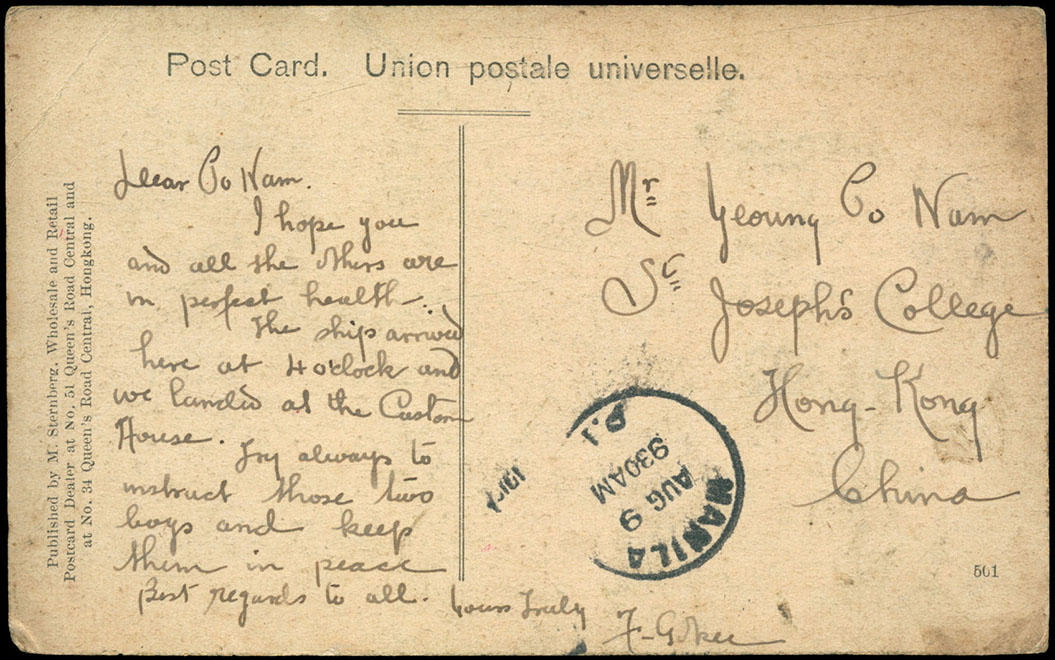 Post Card. Union postale universelle.
Published by M. Sternberg, Wholesale and Retail
Postcard Dealer at No. 51 Queen's Road Central and
at No. 34 Queen's Road Central, Hongkong.
Dear Po Nam.
I hope you
and all the others are
in perfect health.
The ship arrived
here at 4 o'clock and
we landed at the Custom
House.
Try always to
instruct those two
boys and keep
them in peace
Best regards to all. Yours Truly
Mr Yeoung Po Nam
St Joseph's College
Hong-Kong
China
MANILA
P.I
930AM
AUG 9
501